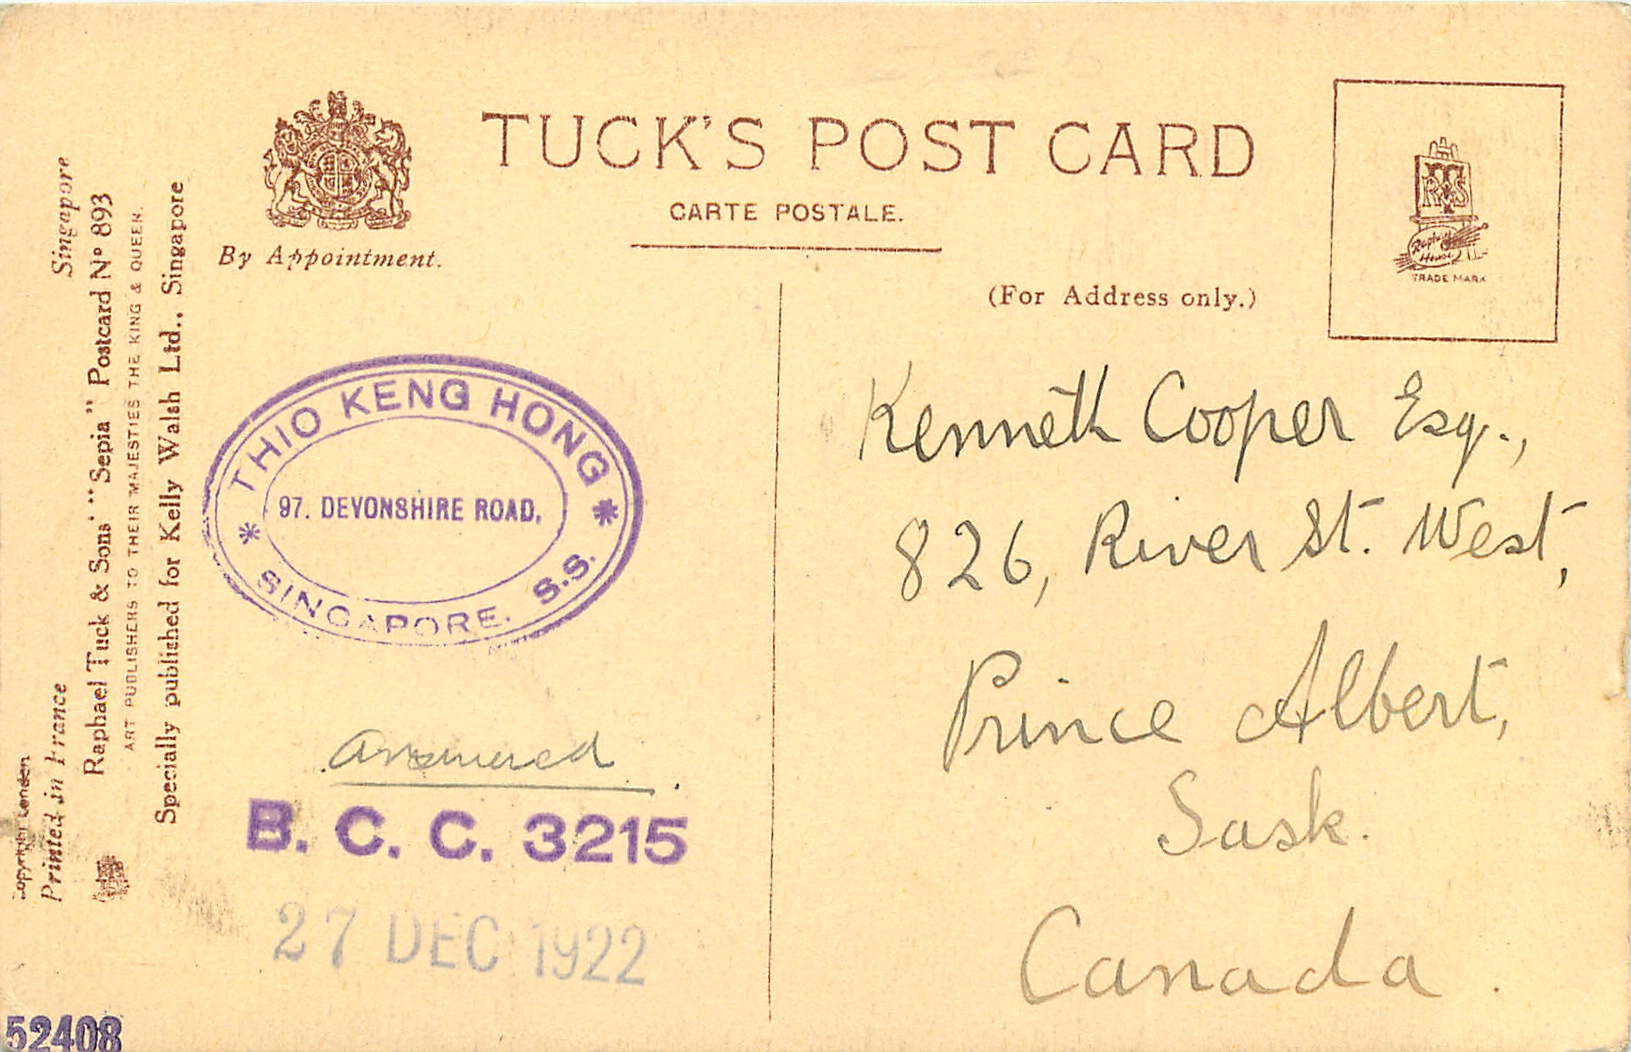 TUCK'S POST CARD
CARTE POSTALE.
By Appointment.
(For Address only.)
RTS
Raphael
House
TRADE MARK
Singapore
Raphael Tuck & Sons' "Sepia" Postcard Nº 893
ART PUBLISHERS TO THEIR MAJESTIES THE KING & QUEEN.
Specially published for Kelly Walsh Ltd., Singapore
Copyright London
Printed in France
THIO KENG HONG
97. DEVONSHIRE ROAD,
SINGAPORE. S.S.
answered
B. C. C. 3215
27 DEC 1922
52408
Kenneth Cooper Esq.,
826, River St. West,
Prince Albert,
Sask.
Canada.